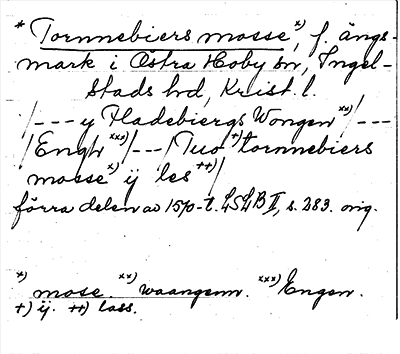 * Tornnebiers mosse x), f. ängs-
mark i Östra Hoby sn, Ingel-
stads hd, Krist. l.
/--- y Fladebiergs Wongen xx)/---
/Engh xxx)/---/Tuo +) tornnebiers
mosse x) ij les ++)/
förra delen av 1570-t. LSLB II, s. 283. orig.
x) mose. xx) waangenn. xxx) Engen.
+) ij. ++) lass.